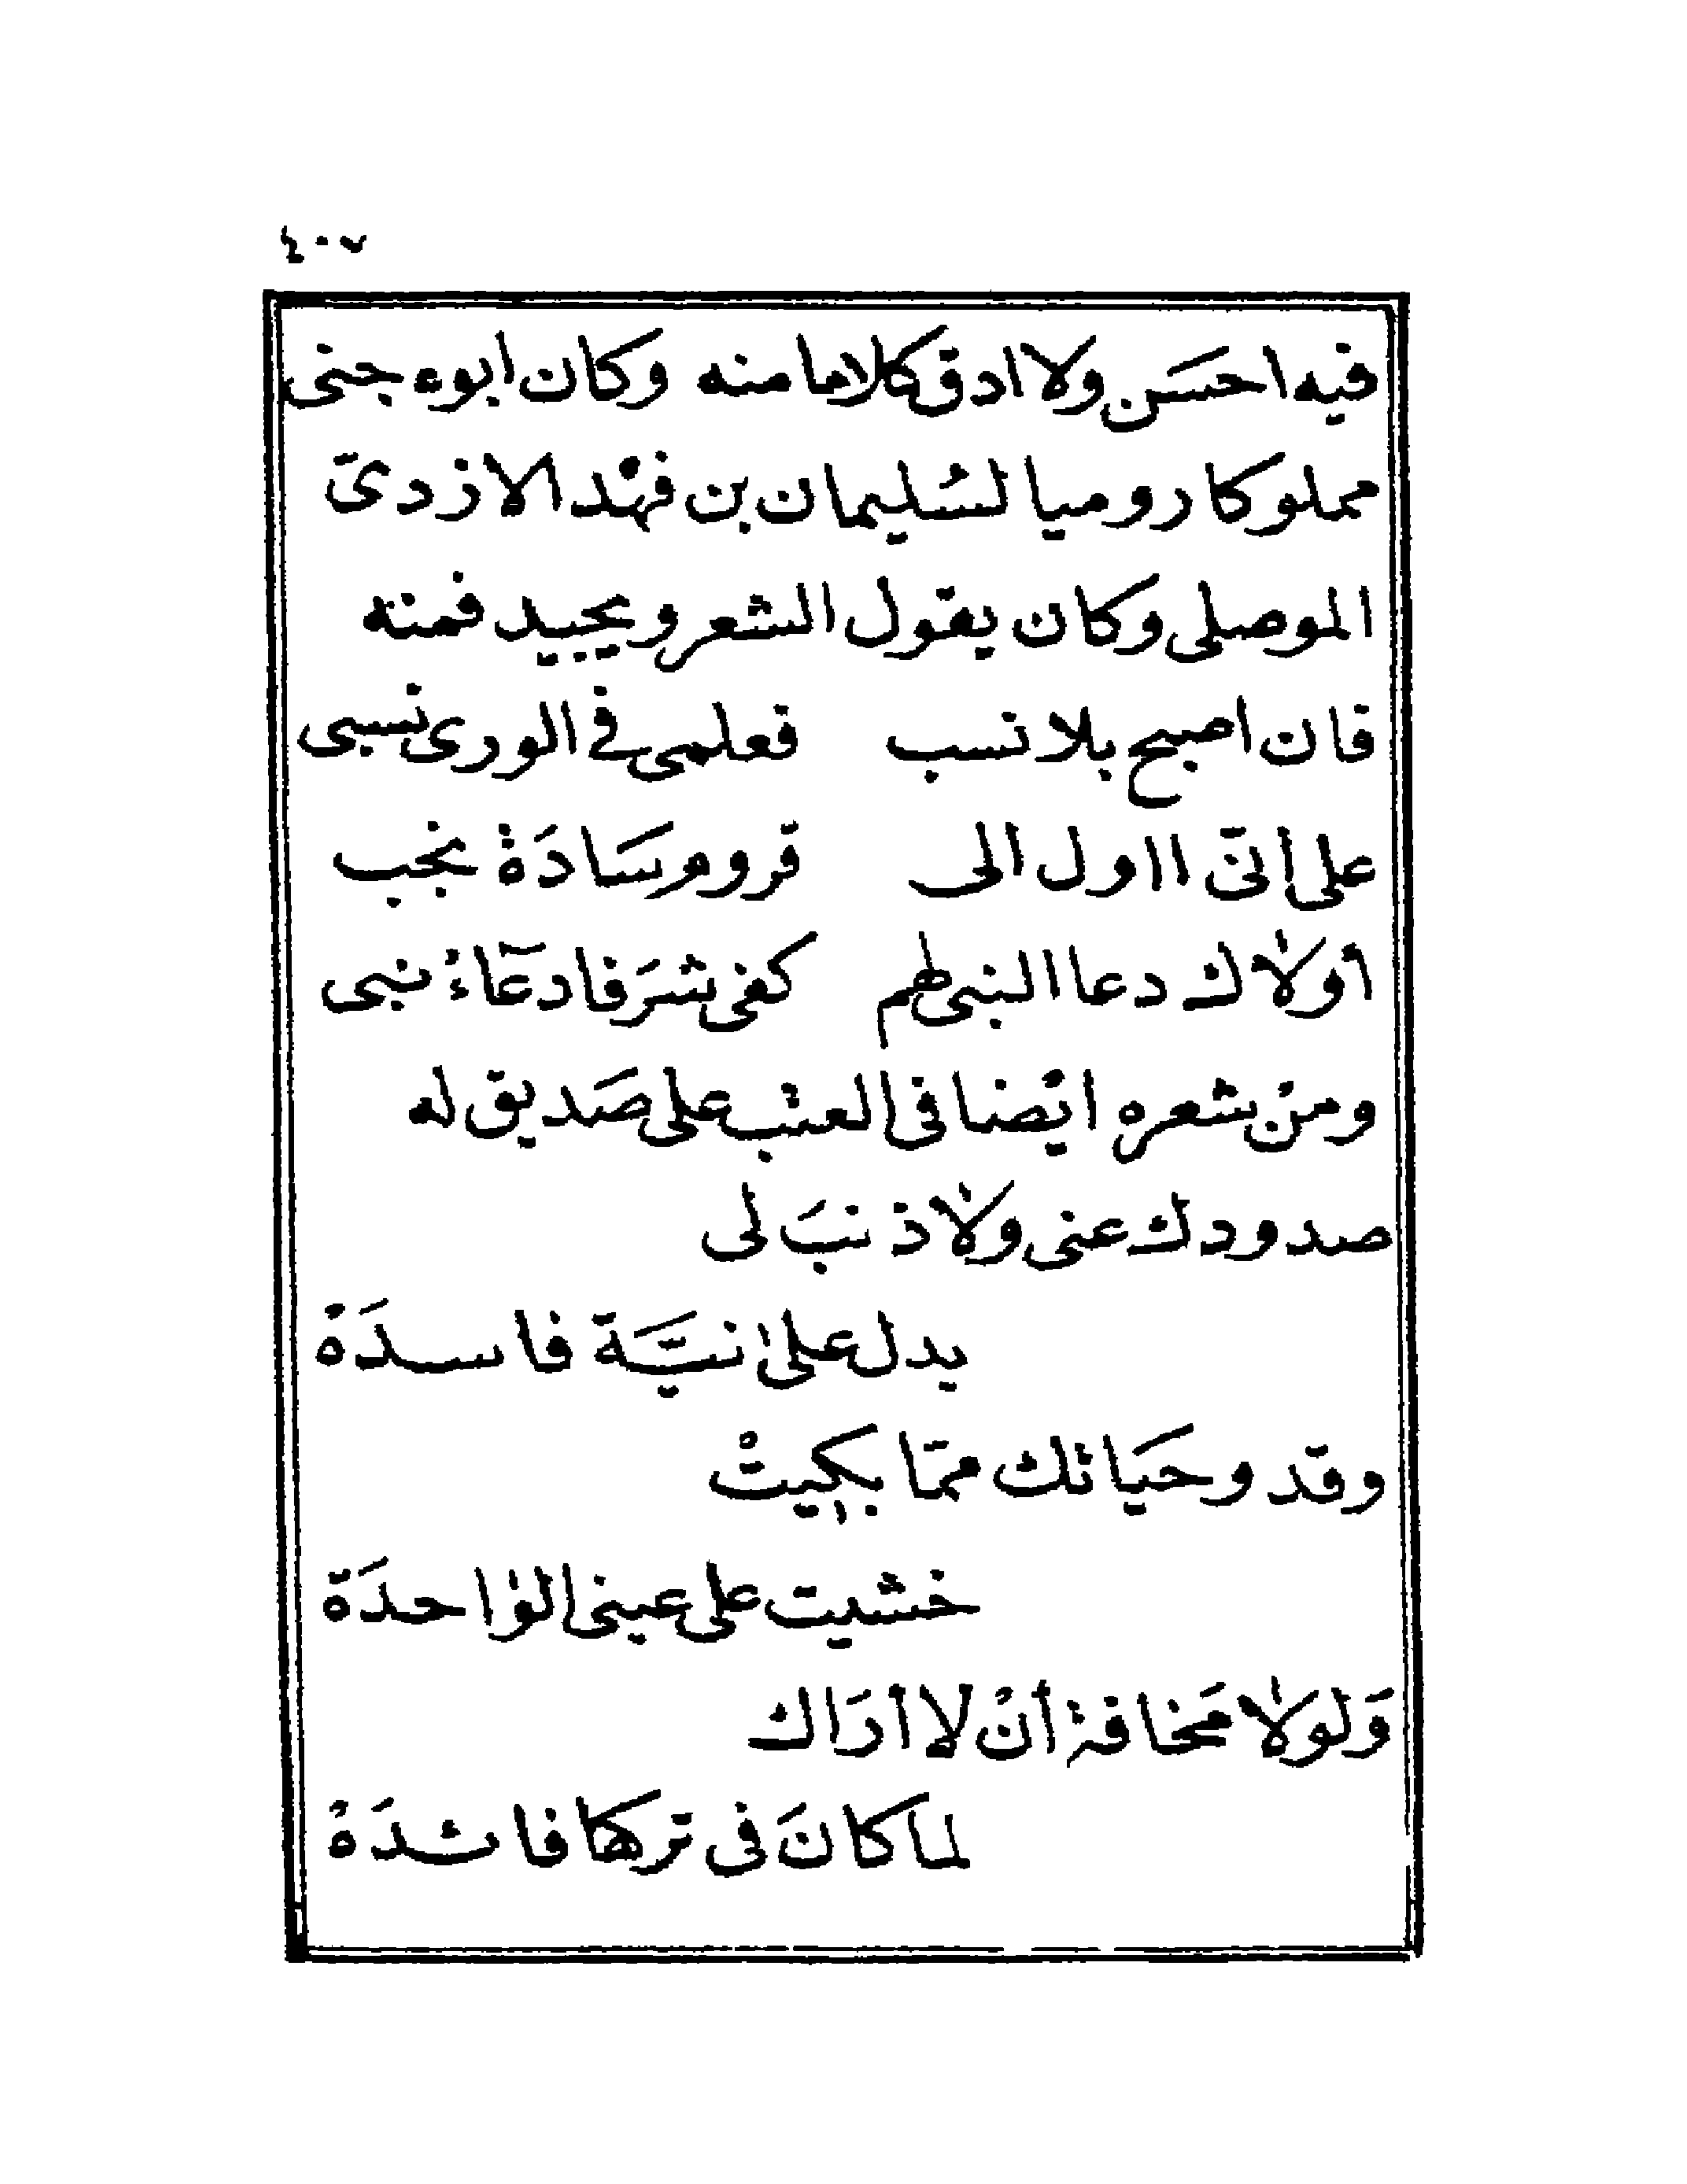 ٤٠٧
فيه احسَن ولا ادق كلاما منه وكان ابوه جنى
مملوكا روميا لسُليمان بن فهْد الازدىّ
الموصلى وكان يقول الشعر ويجيد فمنه
فان اصبح بلا نسب فعلمى فى الورى نسبى
على انّى ااول الى قروم سَادَةْ نجب
أولاك دعا النبى لهم كفى شرَفا دعَآءُ نبى
ومنْ شعره ايْضا فى العتب على صَديق له
صدودك عنى ولا ذنبَ لى
يدل على نيَّة فاسدَهْ
وقد وحَياتك ممّا بكيتْ
خشيت على عينى الواحدَة
وَلولا مَخافةْ أنْ لا أرَاك
لما كانَ فى تركها فائدَهْ